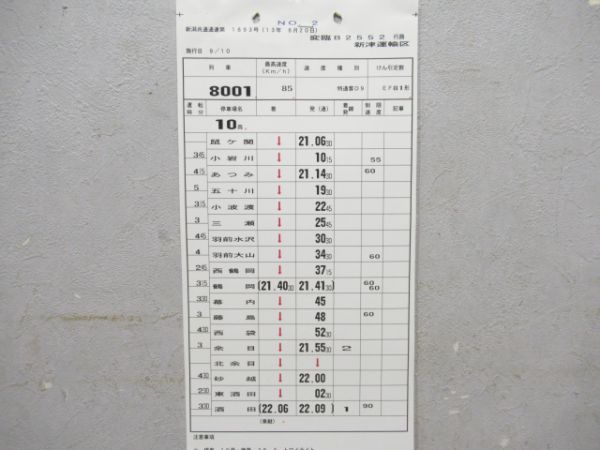 NO. 2
新潟共通達運開 1693号(13年 8月20日) 変臨B2552 行路
新津運輸区
施行日 9/10
列車 最高速度(Km/h) 速度種別 けん引定数
8001 85 特通客D9 EF81形
運転時分 停車場名 着 発(通) 着発線 制限速度 記事
10両
鼠ケ関 ↓ 21.06 30
3 45 小岩川 ↓ 10 15 55
4 15 あつみ ↓ 21.14 30 60
5 五十川 ↓ 19 30
3 15 小波渡 ↓ 22 45
3 三瀬 ↓ 25 45
4 45 羽前水沢 ↓ 30 30
4 羽前大山 ↓ 34 30 60
2 45 西鶴岡 ↓ 37 15
3 15 鶴岡 (21.40 30 21.41 30) 60 60
3 30 幕内 ↓ 45
3 藤島 ↓ 48 60
4 30 西袋 ↓ 52 30
3 余目 ↓ 21.55 30 2
北余目 ↓ ↓
4 30 砂越 ↓ 22.00
2 30 東酒田 ↓ 02 30
3 30 酒田 (22.06 22.09) 1 90
(乗継)
注意事項